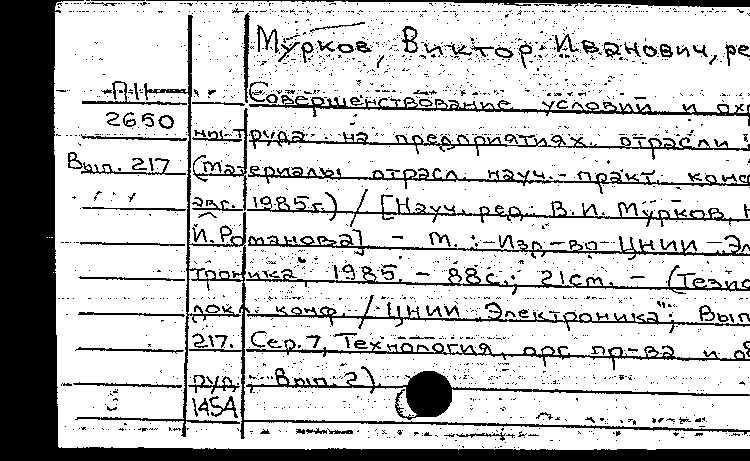 Мурков, Виктор Иванович, ре
П11
Совершенствование условий и охр
2650
ны труда на предприятиях отрасли
Вып. 217
(материалы отрасл. науч.-практ. конф
авг. 1985г.) / [Науч. ред. В.И. Мурков,
Й. Романова] - М. : Изд-во ЦНИИ „Эл
троника, 1985. - 88с.; 21см. - (Тезис
докл. конф. / ЦНИИ „Электроника"; Вып
217. Сер. 7, Технология, орг пр-ва и об
руд.; Вып. 2)
145A